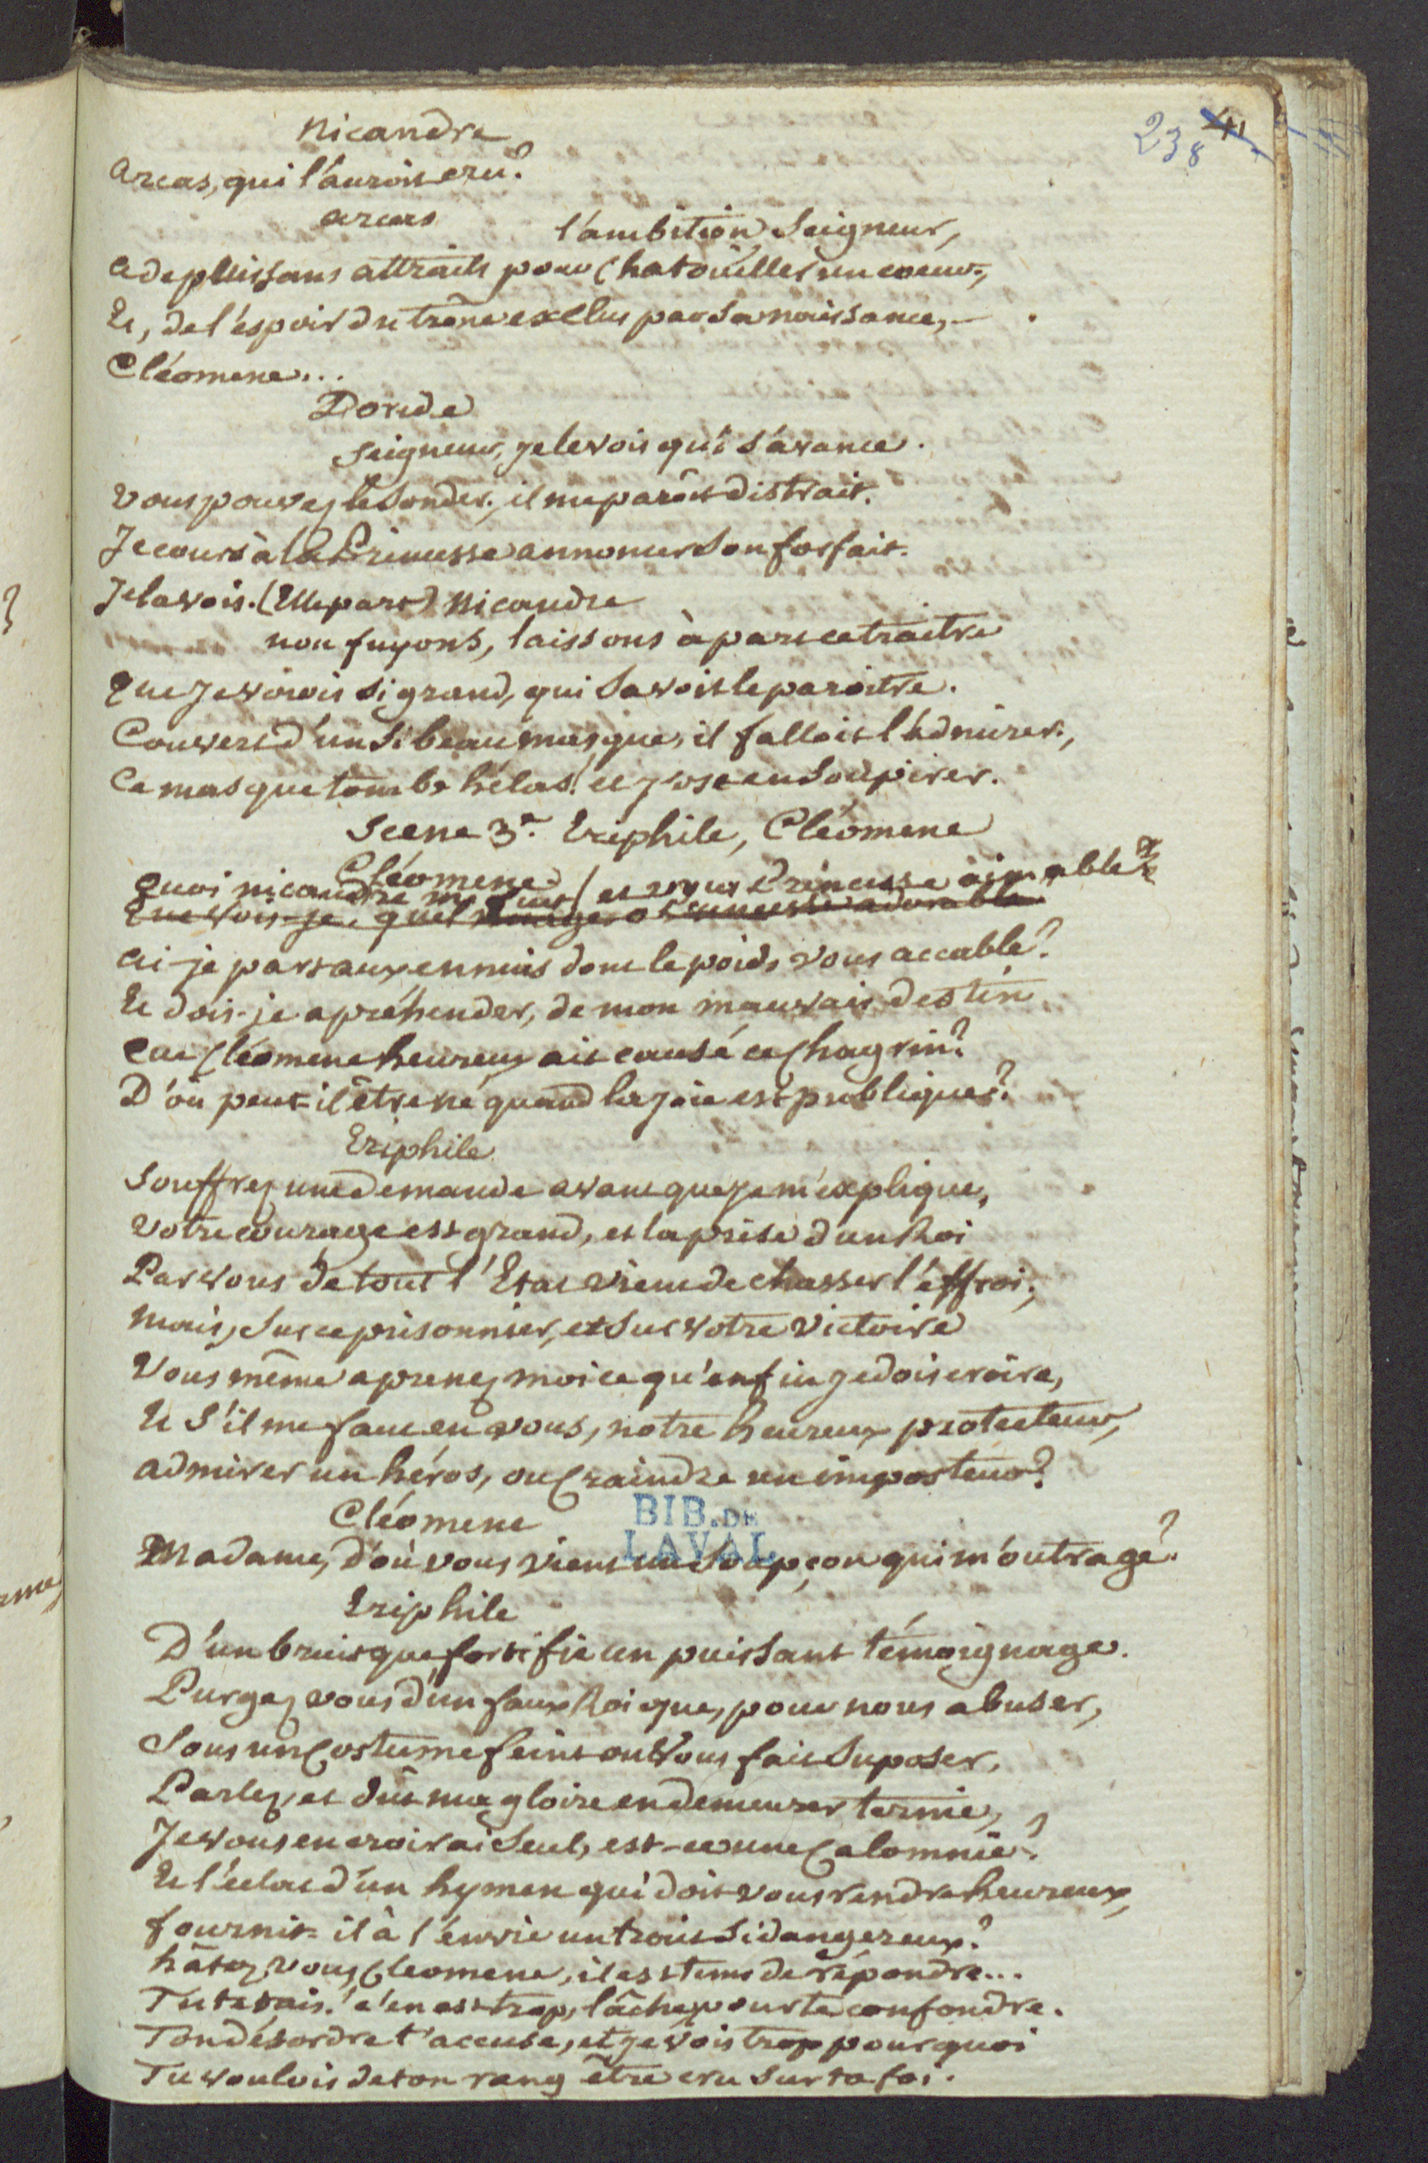 238
Nicandre
Arcas, qui l'auroit cru?
Arcas
l'ambition Seigneur,
a de puissans attraits pour Chatouiller un coeur,
Et, de l'espoir du trône exclus par sa naissance,
Cléomene...
Doride
Seigneur, je le vois qui s'avance.
vous pouvez le sonder, il me paroît distrait.
Je cours à la Princesse annoncer son forfait.
Je la vois. (Elle part) Nicandre
non fuyons, laissons à part ce traitre
Que je voiois si grand, qui savoit le paroitre.
Couvert d'un si beau masque, il falloit l'admirer,
Ce masque tombe hélas! et j'ose en soupirer.
Scene 3e. Eriphile, Cléomene
Cléomene
Quoi nicandre me fuit / et vous Princesse aimable
Que vois-je, quel nuage o Princesse adorable
Ai-je part aux ennuis dont le poids vous accable?
Et dois-je apréhender, de mon mauvais destin
Que Cléomene heureux ait causé ce Chagrin?
D'où peut-il être né quand la joie est publique?
Eriphile
Souffrez une demande avant que je m'explique,
Votre courage est grand, et la prise d'un Roi
Par vous de tout l'Etat vient de chasser l'effroi;
Mais, sur ce prisonnier, et sur votre victoire
Vous même aprenez moi ce qu'enfin je dois croire,
Et s'il me faut en vous, notre heureux protecteur,
admirer un héros, ou Craindre un imposteur?
Cléomene
Madame, d'où vous vient un soupçon qui m'outrage?
BIB. DE
LAVAL
Eriphile
D'un bruit que fortifie un puissant témoignage.
Purgez vous d'un faux Roi que, pour nous abuser,
Sous un Costume feint on vous fait suposer,
Parlez, et dût ma gloire en demeurer ternie,
Je vous en croirai seul, est-ce une Calomnie?
Et l'éclat d'un hymen qui doit vous rendre heureux,
fournit-il à l'envie un trait si dangereux?
hâtez vous Cleomene, il est tems de répondre...
Tu te tais! c'en est trop, lâche, pour te confondre.
Ton désordre t'accuse, et je vois trop pourquoi
Tu voulois de ton rang être cru sur ta foi.